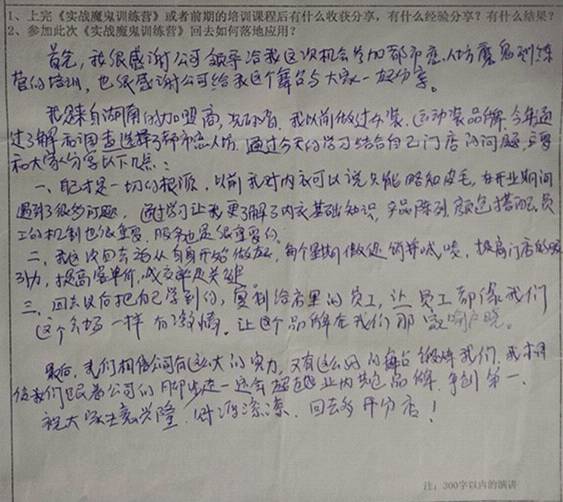 1、上完《实战魔鬼训练营》或者前期的培训课程后有什么收获分享，有什么经验分享？有什么结果？
2、参加此次《实战魔鬼训练营》回去如何落地应用？
首先，我很感谢公司领导给我这次机会参加都市恋人坊魔鬼训练
营的培训，也很感谢公司给我这个舞台与大家一起分享。
我是来自湖南的加盟商，我以前做过女装、运动装品牌，今年通
过了解和调查选择了都市恋人坊。通过今天的学习结合自己门店的问题，主要
和大家分享以下几点：
一、自己才是一切的根源，以前我对内衣可以说只能略知皮毛，在开业期间
遇到了很多问题，通过学习让我更了解了内衣基础知识，产品陈列颜色搭配，员
工的机制也很重要，服务也是很重要的。
二、我这次回去后从自身开始做起，每个星期做促销，提高门店的吸
引力，提高客单价，成交率是关键。
三、回去以后把自己学到的，复制给店里的员工，让员工都像我们
这个会场一样有激情。让这个品牌在我们那家喻户晓。
最后，我们相信公司有这么大的实力，又有这么好的舞台锻炼我们，我相
信我们跟着公司的脚步走一定会超越业内其它品牌，争创第一，
祝大家生意兴隆，财源滚滚，回去多开分店！
注：300字以内的演讲